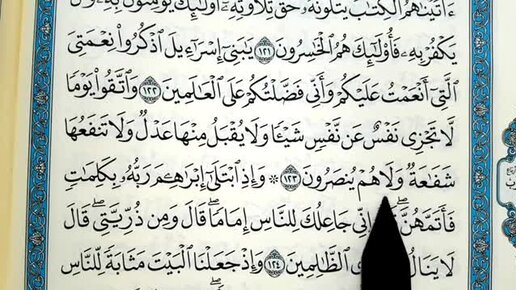 ءَاتَيْنَٰهُمُ ٱلْكِتَٰبَ يَتْلُونَهُۥ حَقَّ تِلَاوَتِهِۦٓ أُو۟لَٰٓئِكَ يُؤْمِنُونَ بِهِۦ وَمَن
يَكْفُرْ بِهِۦ فَأُو۟لَٰٓئِكَ هُمُ ٱلْخَٰسِرُونَ ١٢١ يَٰبَنِىٓ إِسْرَٰٓءِيلَ ٱذْكُرُوا۟ نِعْمَتِىَ
ٱلَّتِىٓ أَنْعَمْتُ عَلَيْكُمْ وَأَنِّى فَضَّلْتُكُمْ عَلَى ٱلْعَٰلَمِينَ ١٢٢ وَٱتَّقُوا۟ يَوْمًا
لَّا تَجْزِى نَفْسٌ عَن نَّفْسٍ شَيْـًٔا وَلَا يُقْبَلُ مِنْهَا عَدْلٌ وَلَا تَنفَعُهَا
شَفَٰعَةٌ وَلَا هُمْ يُنصَرُونَ ١٢٣ ۞ وَإِذِ ٱبْتَلَىٰٓ إِبْرَٰهِـۧمَ رَبُّهُۥ بِكَلِمَٰتٍ
فَأَتَمَّهُنَّ إِنِّى جَاعِلُكَ لِلنَّاسِ إِمَامًا قَالَ وَمِن ذُرِّيَّتِى قَالَ
لَا يَنَالُ ٱلظَّٰلِمِينَ ١٢٤ وَإِذْ جَعَلْنَا ٱلْبَيْتَ مَثَابَةً لِّلنَّاسِ